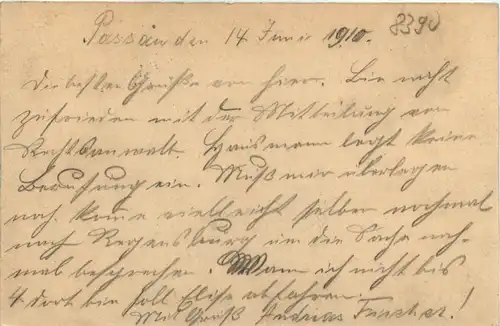 Passau den 14 Juni 1910. 8390
Die besten Grüße von hier. Bin nicht
zufrieden mit der Mitteilung von
Rechtsanwalt. Hausmann legt keine
Berufung ein. Muß mir überlegen
noch. Komme vielleicht selber nochmal
nach Regensburg um die Sache noch-
mal besprechen. Wann ich nicht bis
4 dort bin soll Elise abfahren.
Mit Gruß Andreas Fischer!